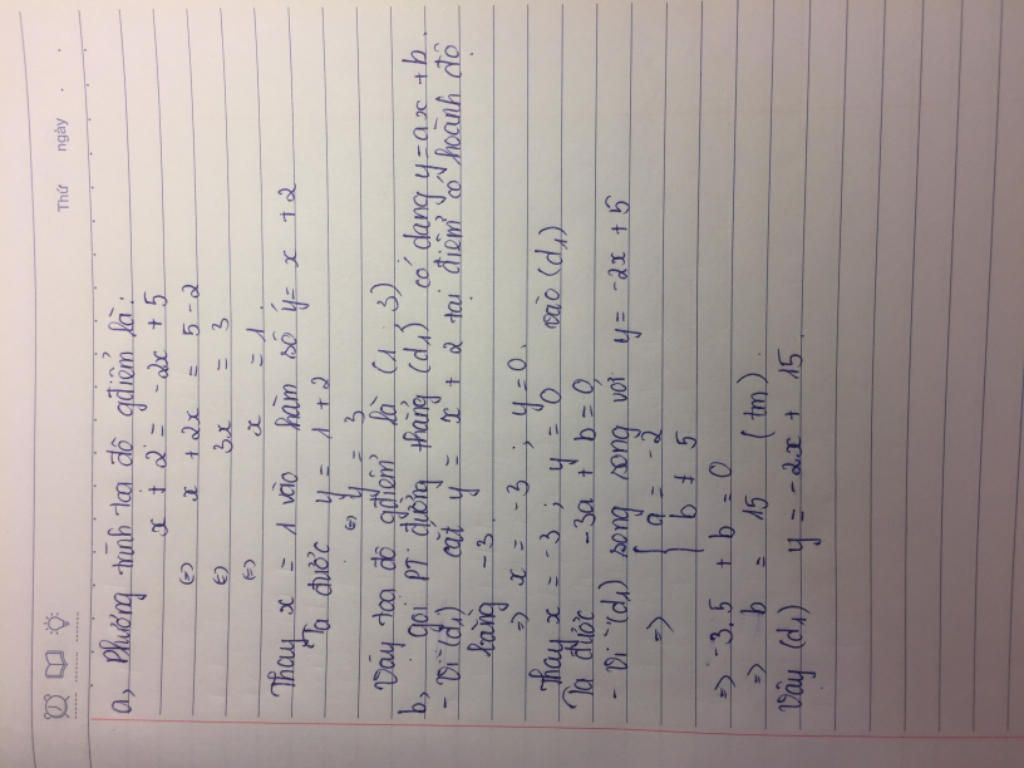 Thứ ngày
a, Phương trình toạ độ gđiểm là:
x + 2 = -2x + 5
(=) x + 2x = 5 - 2
(=) 3x = 3
(=) x = 1
Thay x = 1 vào hàm số y = x + 2
Ta được y = 1 + 2
(=) y = 3
Vậy toạ độ gđiểm là (1; 3)
b, gọi PT đường thẳng (d1) có dạng y = ax + b.
- Vì (d1) cắt y = x + 2 tại điểm có hoành độ
bằng -3.
=> x = -3 ; y = 0.
Thay x = -3 ; y = 0 vào (d1)
Ta được -3a + b = 0
- Vì (d1) song song với y = -2x + 5
=> { a = -2
b ≠ 5
=> -3.5 + b = 0
=> b = 15 (tm).
Vậy (d1) y = -2x + 15